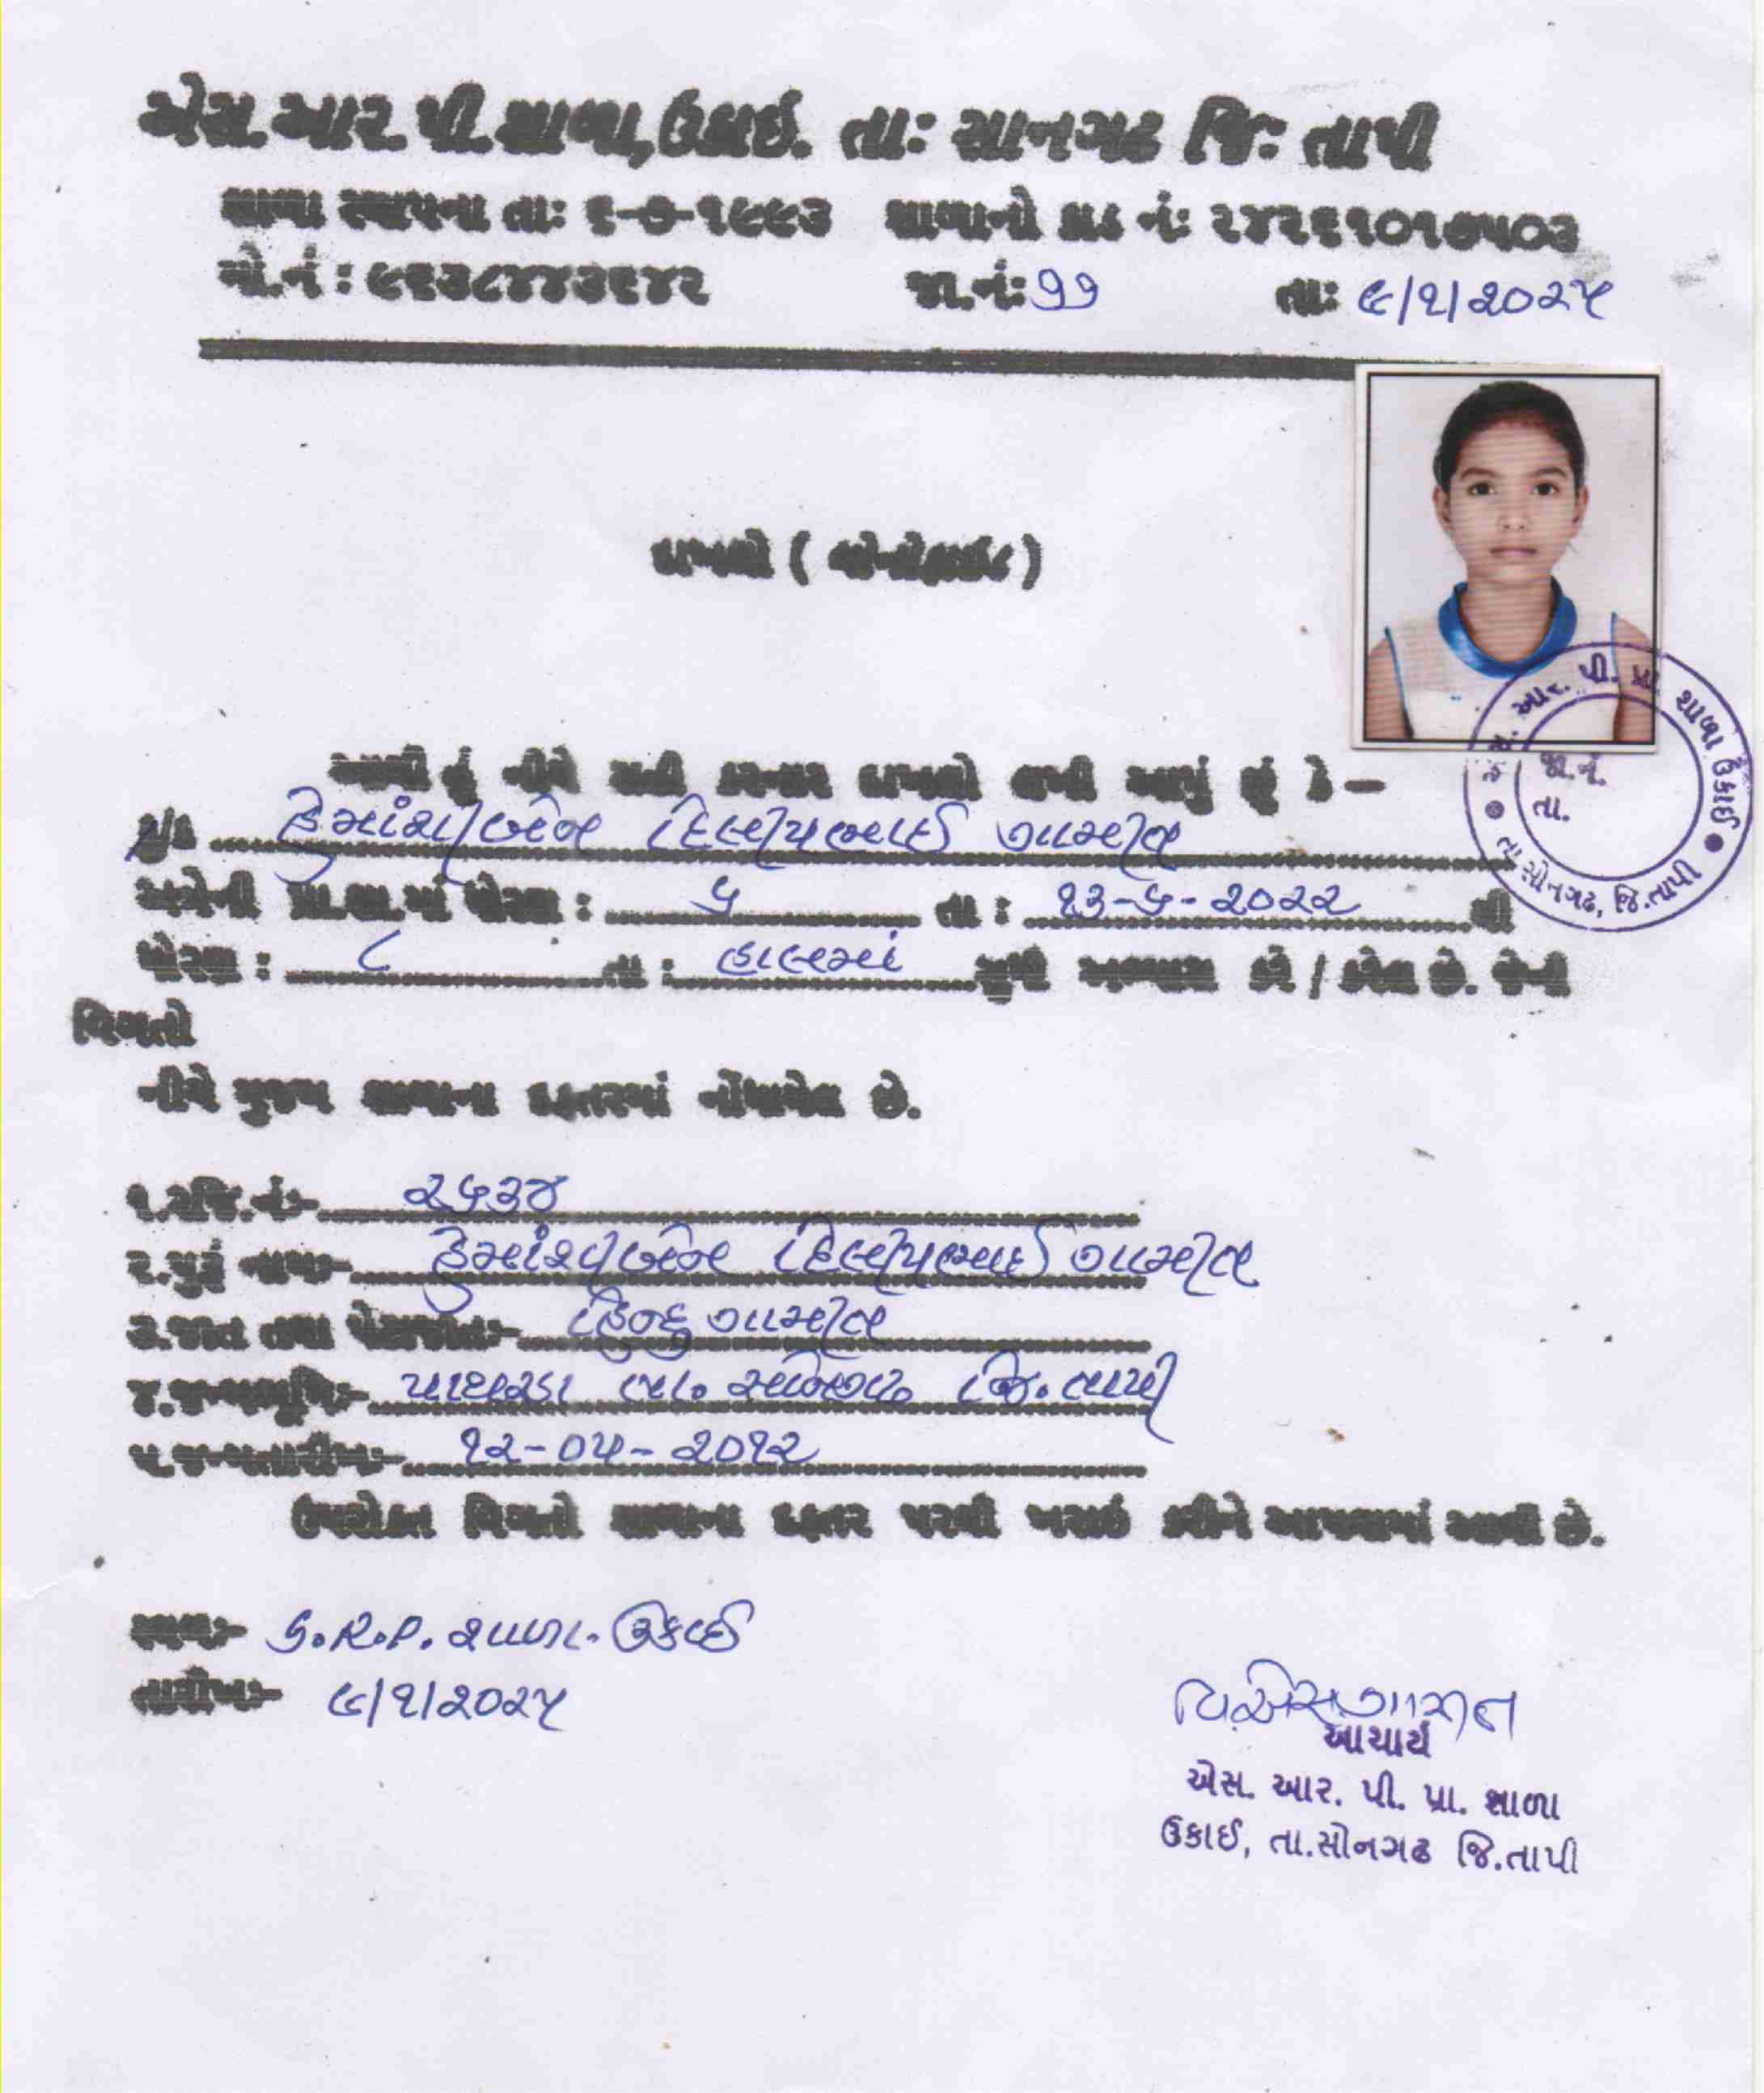 એસ.આર.પી.શાળા,ઉકાઈ. તા: સોનગઢ જિ: તાપી
શાળા સ્થાપના તા: ૬-૭-૧૯૯૩ શાળાનો કોડ નં: ૨૪૨૬૧૦૧૭૫૦૩
મો.નં : ૯૬૩૮૪૪૩૬૪૨ જા.નં: ૧૧ તા: ૯/૧/૨૦૨૫
દાખલો ( બોનોફાઈડ )
આથી હું નીચે સહી કરનાર દાખલો લખી આપું છું કે –
કુ હેમાંશીબેન દિલીપભાઈ ગામીત
અત્રેની પ્રા.શા.માં ધોરણ : ૬ તા : ૧૩-૬-૨૦૨૨ થી
ધોરણ : ૮ તા : હાલમાં સુધી અભ્યાસ કરે / કરેલ છે. જેની
વિગતો
નીચે મુજબ શાળાના દફતરમાં નોંધાયેલ છે.
૧.રજિ.નં:- ૨૬૩૪
૨.પુરું નામ:- હેમાંશીબેન દિલીપભાઈ ગામીત
૩.જાત તથા પેટાજાત:- હિન્દુ ગામીત
૪.જન્મભૂમિ:- પાથરડા તા. સોનગઢ જિ. તાપી
૫.જન્મતારીખ:- ૧૨-૦૫-૨૦૧૨
ઉપરોક્ત વિગતો શાળાના દફતર પરથી ખરાઈ કરીને આપવામાં આવી છે.
સ્થળ:- S.R.P. શાળા. ઉકાઈ
તારીખ:- ૯/૧/૨૦૨૫
આચાર્ય
એસ. આર. પી. પ્રા. શાળા
ઉકાઈ, તા.સોનગઢ જિ.તાપી
એસ. આર. પી. પ્રા. શાળા ઉકાઈ
તા. સોનગઢ, જિ.તાપી
જા.નં.
તા.